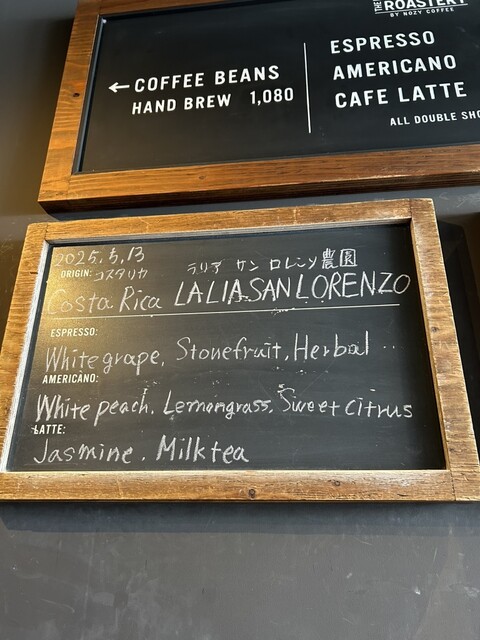 THE ROASTERY
BY NOZY COFFEE
←COFFEE BEANS
HAND BREW 1,080
ESPRESSO
AMERICANO
CAFE LATTE
ALL DOUBLE SHO
2025.5.13
ORIGIN: コスタリカ
ラリア サン ロレンソ農園
Costa Rica LALIA.SAN LORENZO
ESPRESSO:
White grape, Stonefruit, Herbal ...
AMERICANO:
White peach, Lemongrass, Sweet citrus
LATTE:
Jasmine. Milktea